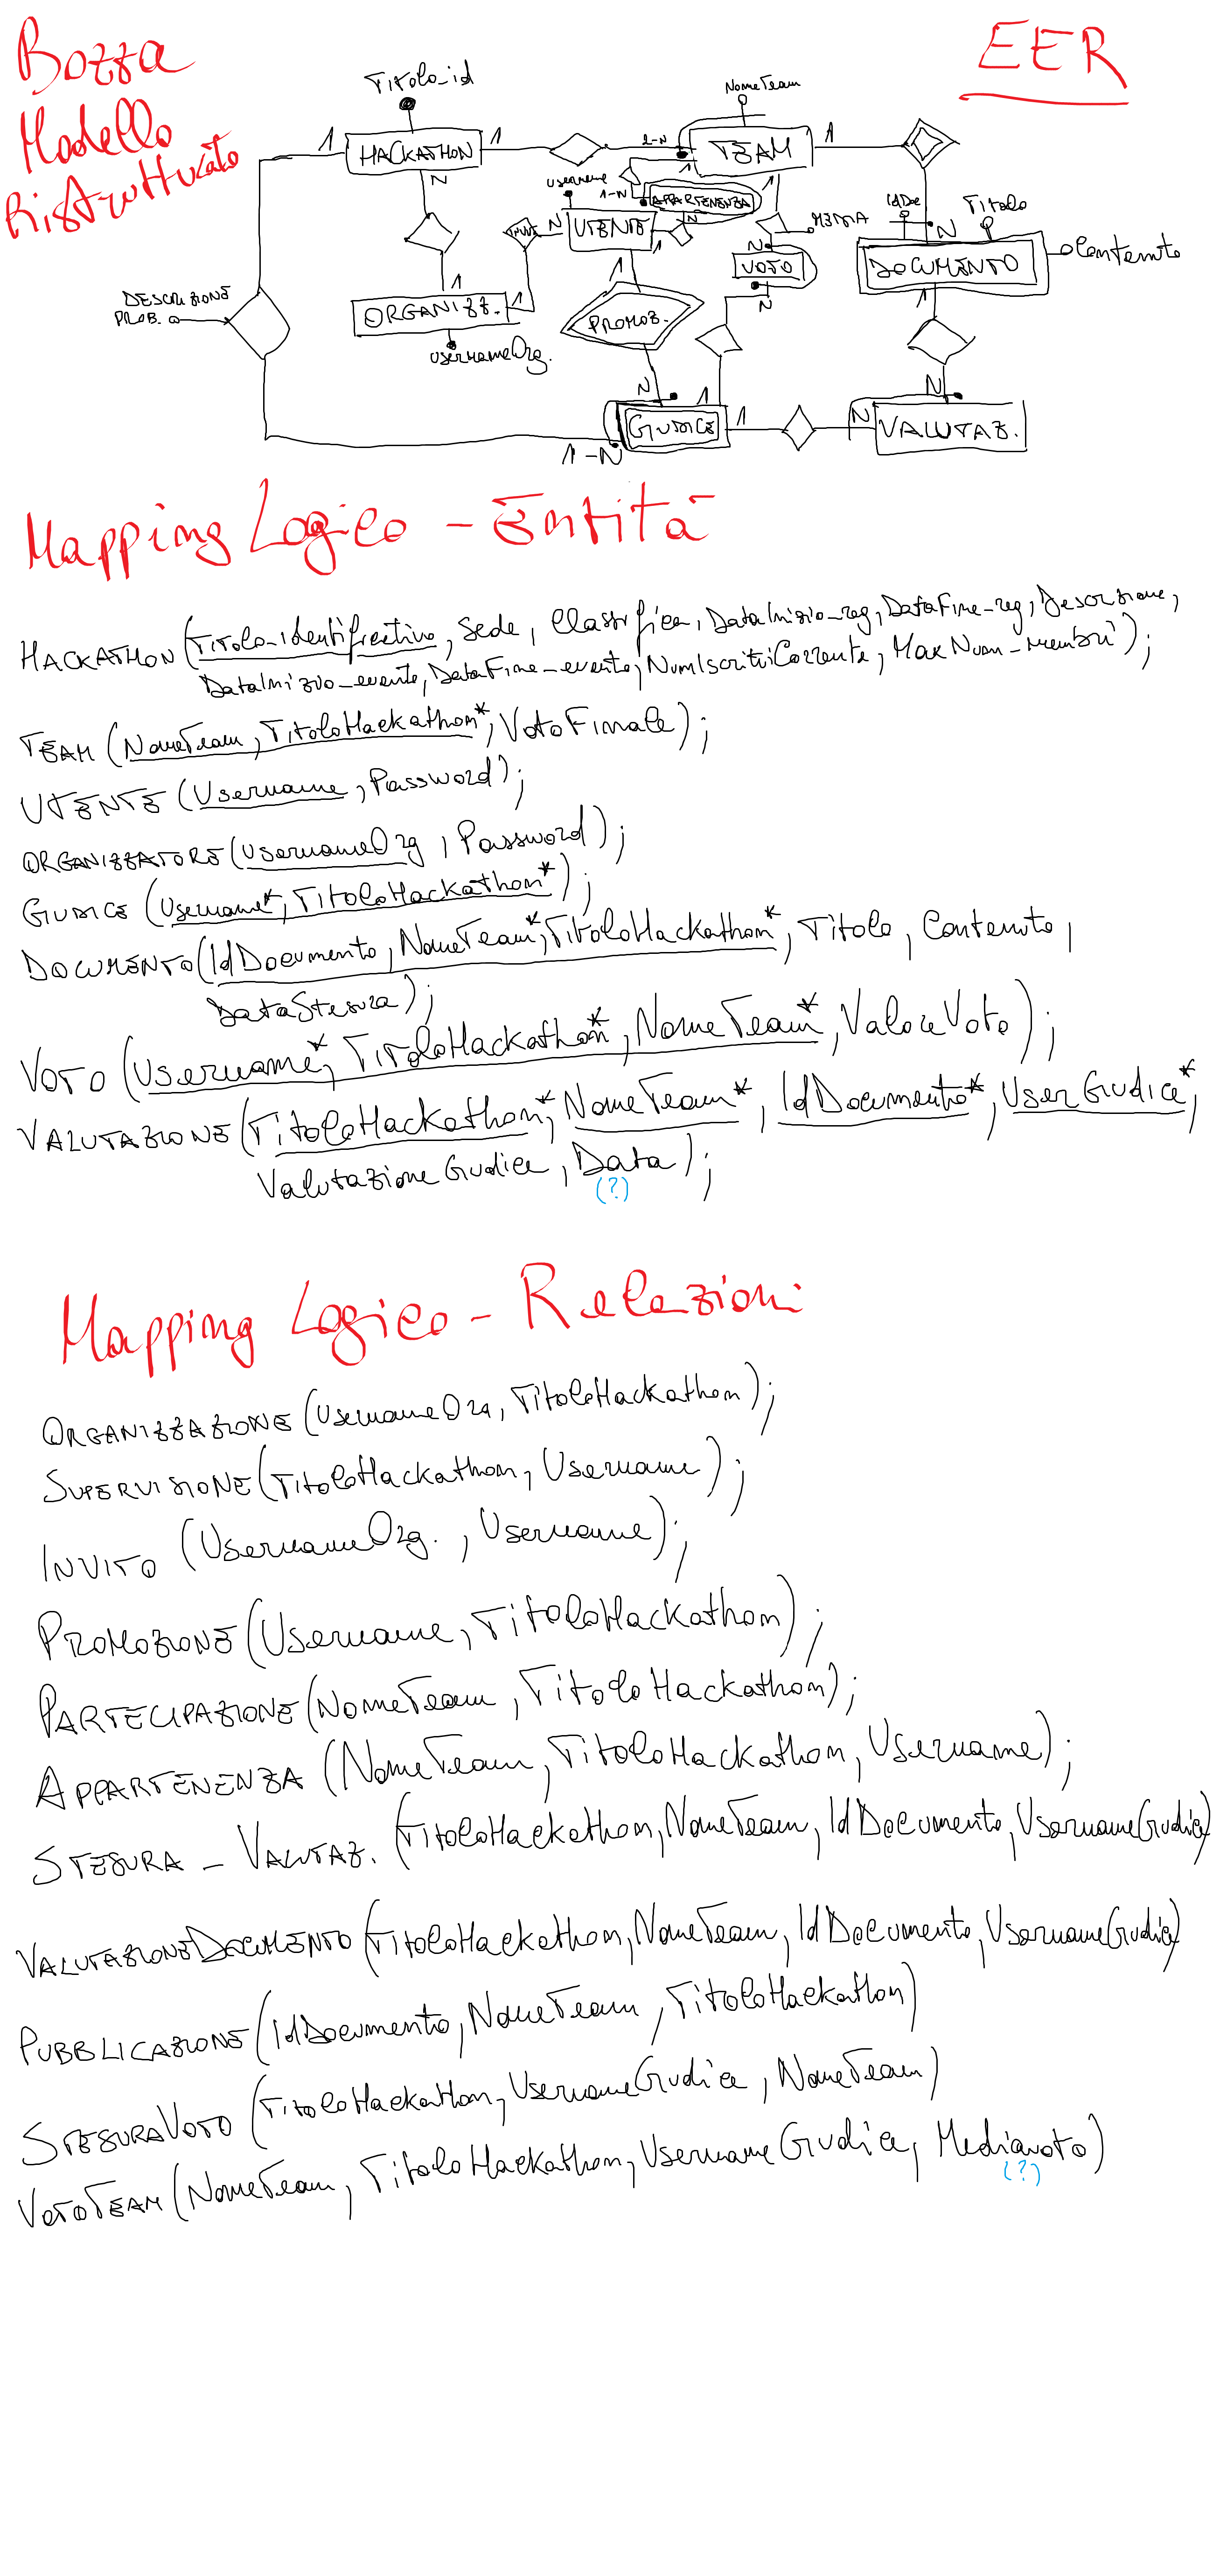 Bozza
Modello
Ristrutturato
EER
Titolo_id
NomeTeam
1
HACKATHON
1
2-N
TEAM
1
N
username
1-N
1
APPARTENENZA
1
N
UTENTE
1
N
MEDIA
N
VOTO
N
IdDoc
Titolo
N
DOCUMENTO
Contenuto
1
DESCRIZIONE
PROB.
1
ORGANIZZ.
1
usernameOrg.
1
PROMOZ.
N
1
GIUDICE
1
1-N
N
N
VALUTAZ.
Mapping Logico - Entità
HACKATHON (Titolo-identificativo, Sede, Classifica, DataInizio-reg, DataFine-reg, Descrizione,
DataInizio-evento, DataFine-evento, NumIscrittiCorrente, MaxNum-membri);
TEAM (NomeTeam, TitoloHackathon*, VotoFinale);
UTENTE (Username, Password);
ORGANIZZATORE (UsernameOrg, Password);
GIUDICE (Username*, TitoloHackathon*);
DOCUMENTO (IdDocumento, NomeTeam*, TitoloHackathon*, Titolo, Contenuto,
DataStesura);
VOTO (Username*, TitoloHackathon*, NomeTeam*, ValoreVoto);
VALUTAZIONE (TitoloHackathon*, NomeTeam*, IdDocumento*, UserGiudice*,
ValutazioneGiudice, Data);
(?)
Mapping Logico - Relazioni
ORGANIZZAZIONE (UsernameOrg, TitoloHackathon);
SUPERVISIONE (TitoloHackathon, Username);
INVITO (UsernameOrg., Username);
PROMOZIONE (Username, TitoloHackathon);
PARTECIPAZIONE (NomeTeam, TitoloHackathon);
APPARTENENZA (NomeTeam, TitoloHackathon, Username);
STESURA - VALUTAZ. (TitoloHackathon, NomeTeam, IdDocumento, UsernameGiudice)
VALUTAZIONEDOCUMENTO (TitoloHackathon, NomeTeam, IdDocumento, UsernameGiudice)
PUBBLICAZIONE (IdDocumento, NomeTeam, TitoloHackathon)
STESURAVOTO (TitoloHackathon, UsernameGiudice, NomeTeam)
VOTOTEAM (NomeTeam, TitoloHackathon, UsernameGiudice, Mediavoto)
(?)